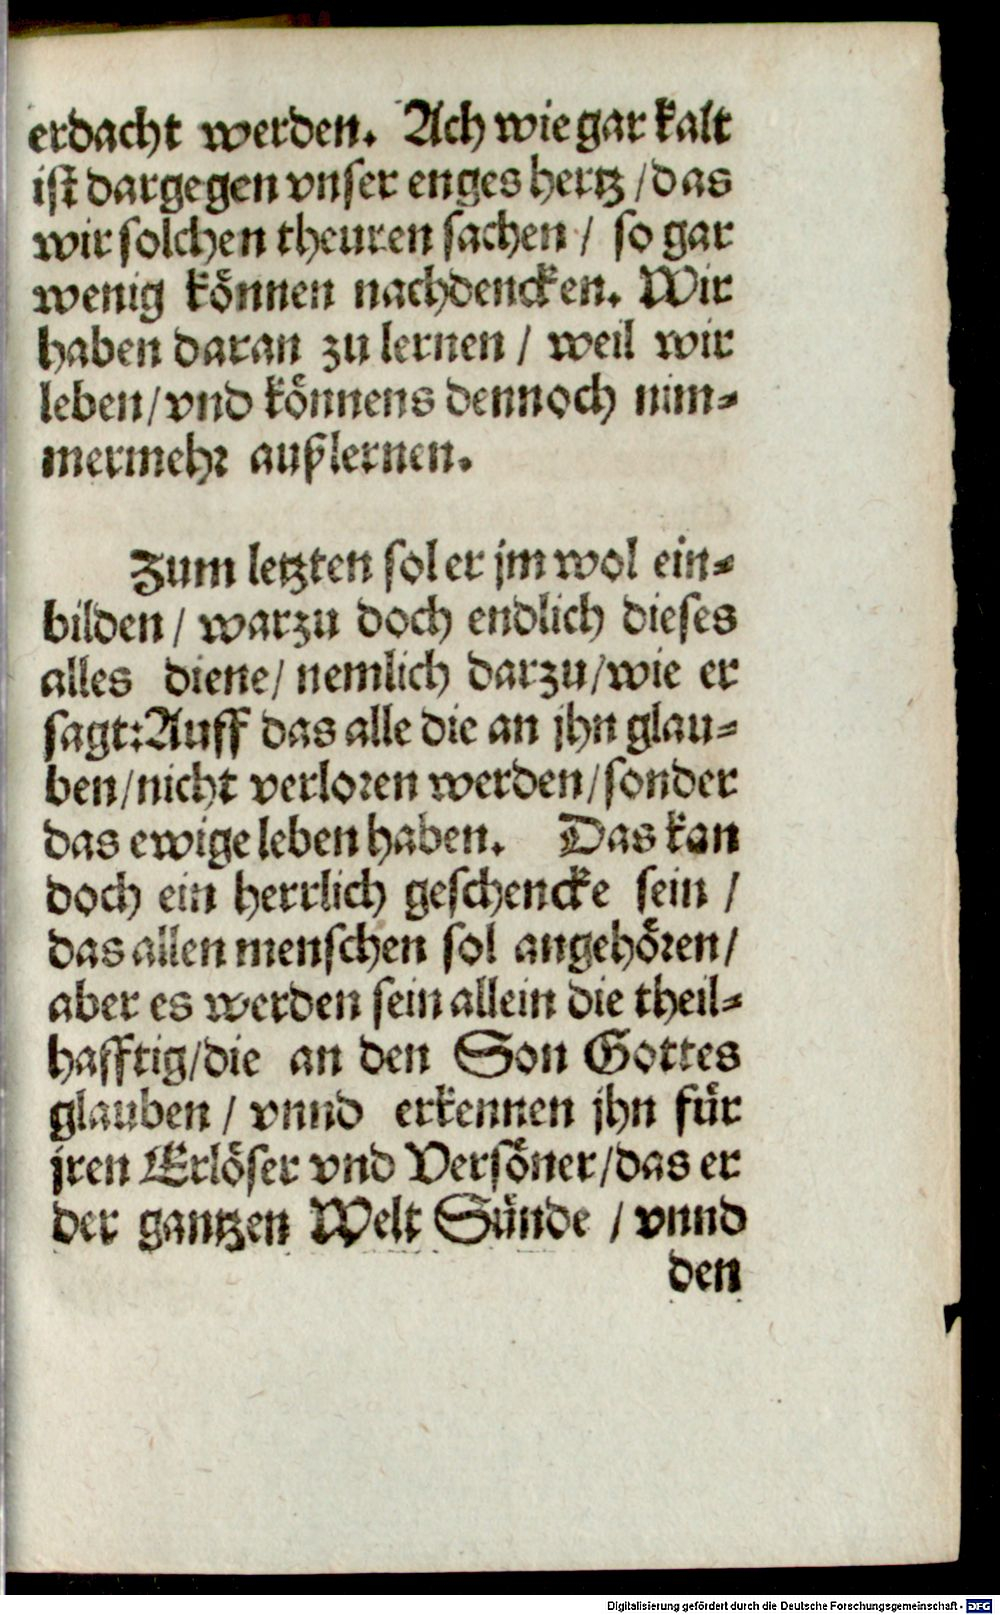 erdacht werden. Ach wie gar kalt
ist dargegen vnser enges hertz / das
wir solchen theuren sachen / so gar
wenig können nachdencken. Wir
haben daran zu lernen / weil wir
leben / vnd könnens dennoch nim⸗
mermehr außlernen.
Zum letzten sol er jm wol ein⸗
bilden / warzu doch endlich dieses
alles diene / nemlich darzu / wie er
sagt: Auff das alle die an jhn glau⸗
ben / nicht verloren werden / sonder
das ewige leben haben. Das kan
doch ein herrlich geschencke sein /
das allen menschen sol angehören /
aber es werden sein allein die theil⸗
hafftig / die an den Son Gottes
glauben / vnnd erkennen jhn für
jren Erlöser vnd Versöner / das er
der gantzen Welt Sünde / vnnd
den
Digitalisierung gefördert durch die Deutsche Forschungsgemeinschaft - DFG